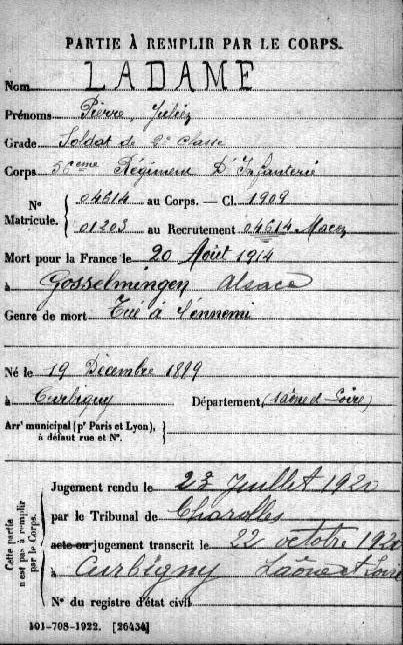 PARTIE À REMPLIR PAR LE CORPS.
Nom LADAME
Prénoms Pierre, Juliez
Grade Soldat de 2e classe
Corps 56eme Régiment D'Infanterie
N° Matricule. { 04614 au Corps. — Cl. 1909
01203 au Recrutement 04614 Macon
Mort pour la France le 20 Août 1914
à Gosselmingen Alsace
Genre de mort Tué à l'ennemi
Né le 19 Décembre 1889
à Curbigny Département, (Saône et-Loire)
Arr' municipal (pr Paris et Lyon),
à défaut rue et N°.
Cette partie
n'est pas à remplir
par le Corps.
Jugement rendu le 23 Juillet 1920
par le Tribunal de Charolles
acte ou jugement transcrit le 22 octobre 1920
à Curbigny Saône et Loire
N° du registre d'état civil
101-708-1922. [26434]